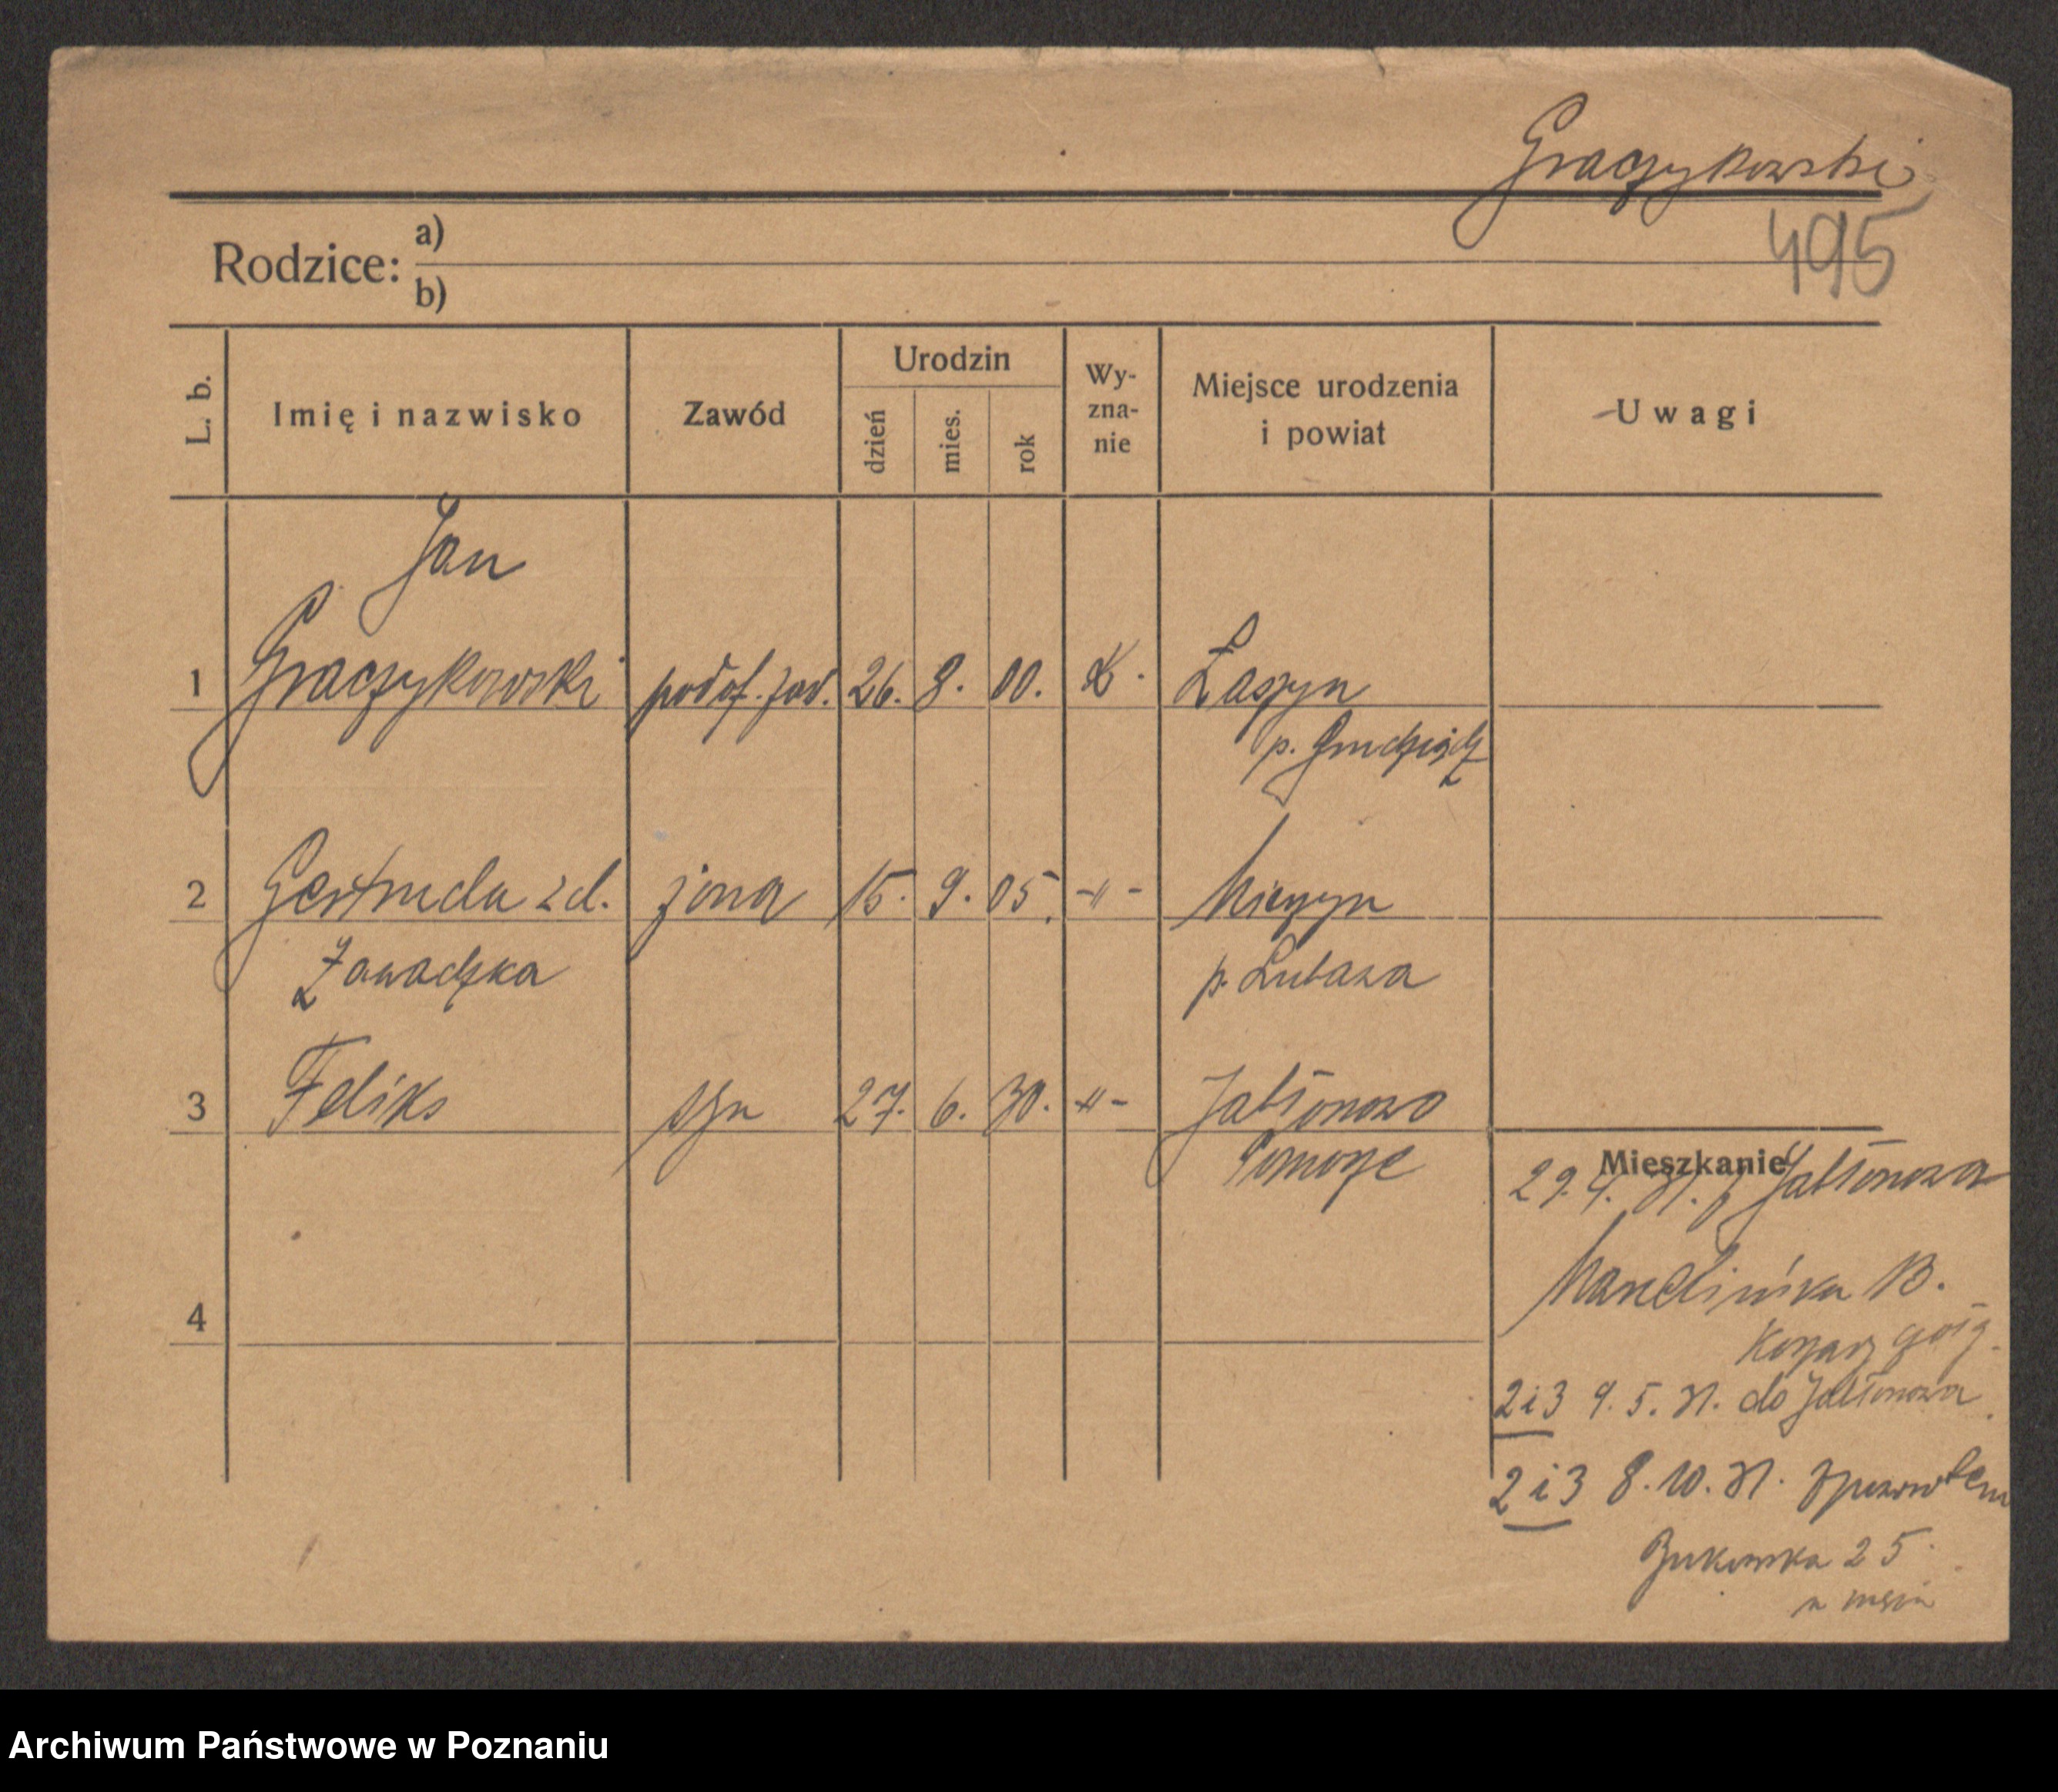 Graczykowski
495
Rodzice: a)
b)
L. b.
Imię i nazwisko
Zawód
Urodzin
dzień
mies.
rok
Wy-
zna-
nie
Miejsce urodzenia
i powiat
Uwagi
Jan
1 Graczykowski podof. zaw. 26. 8. 00. K. Łaszyn
p. Grudziądz
2 Gertruda z d. żona 15. 9. 05. -"-
Zawadzka p. Lubawa
3 Feliks syn 27. 6. 30. -"- Jabłonowo
Pomorze
Mieszkanie
29. 4. 31. z Jabłonowa
4
Marcelińska B.
2 i 3 9. 5. 31. do Jabłonowa
2 i 3 8. 10. 31. z powrotem
Bukowska 25
Archiwum Państwowe w Poznaniu